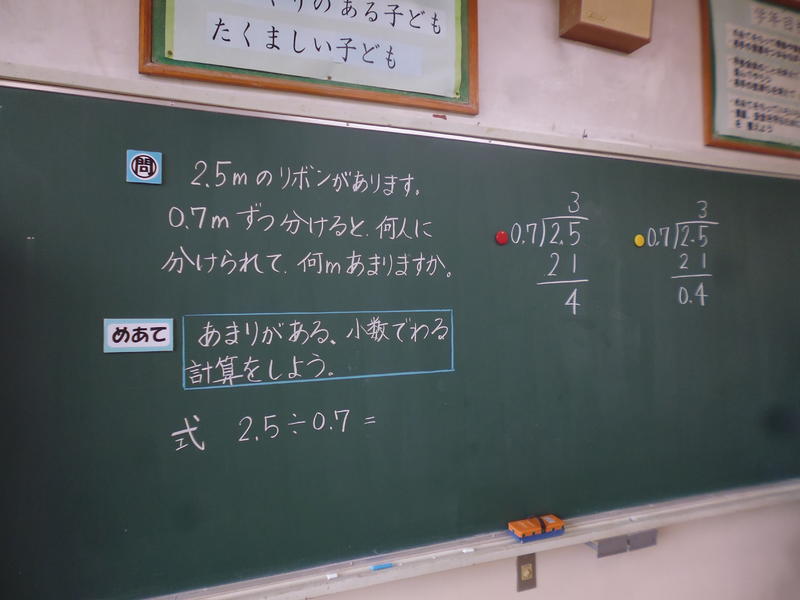 くりのある子ども
たくましい子ども
問
2.5mのリボンがあります。
0.7mずつ分けると、何人に
分けられて、何mあまりますか。
めあて
あまりがある、小数でわる
計算をしよう。
式 2.5÷0.7=
3
0.7)2.5
21
4
3
0.7)2.5
21
0.4